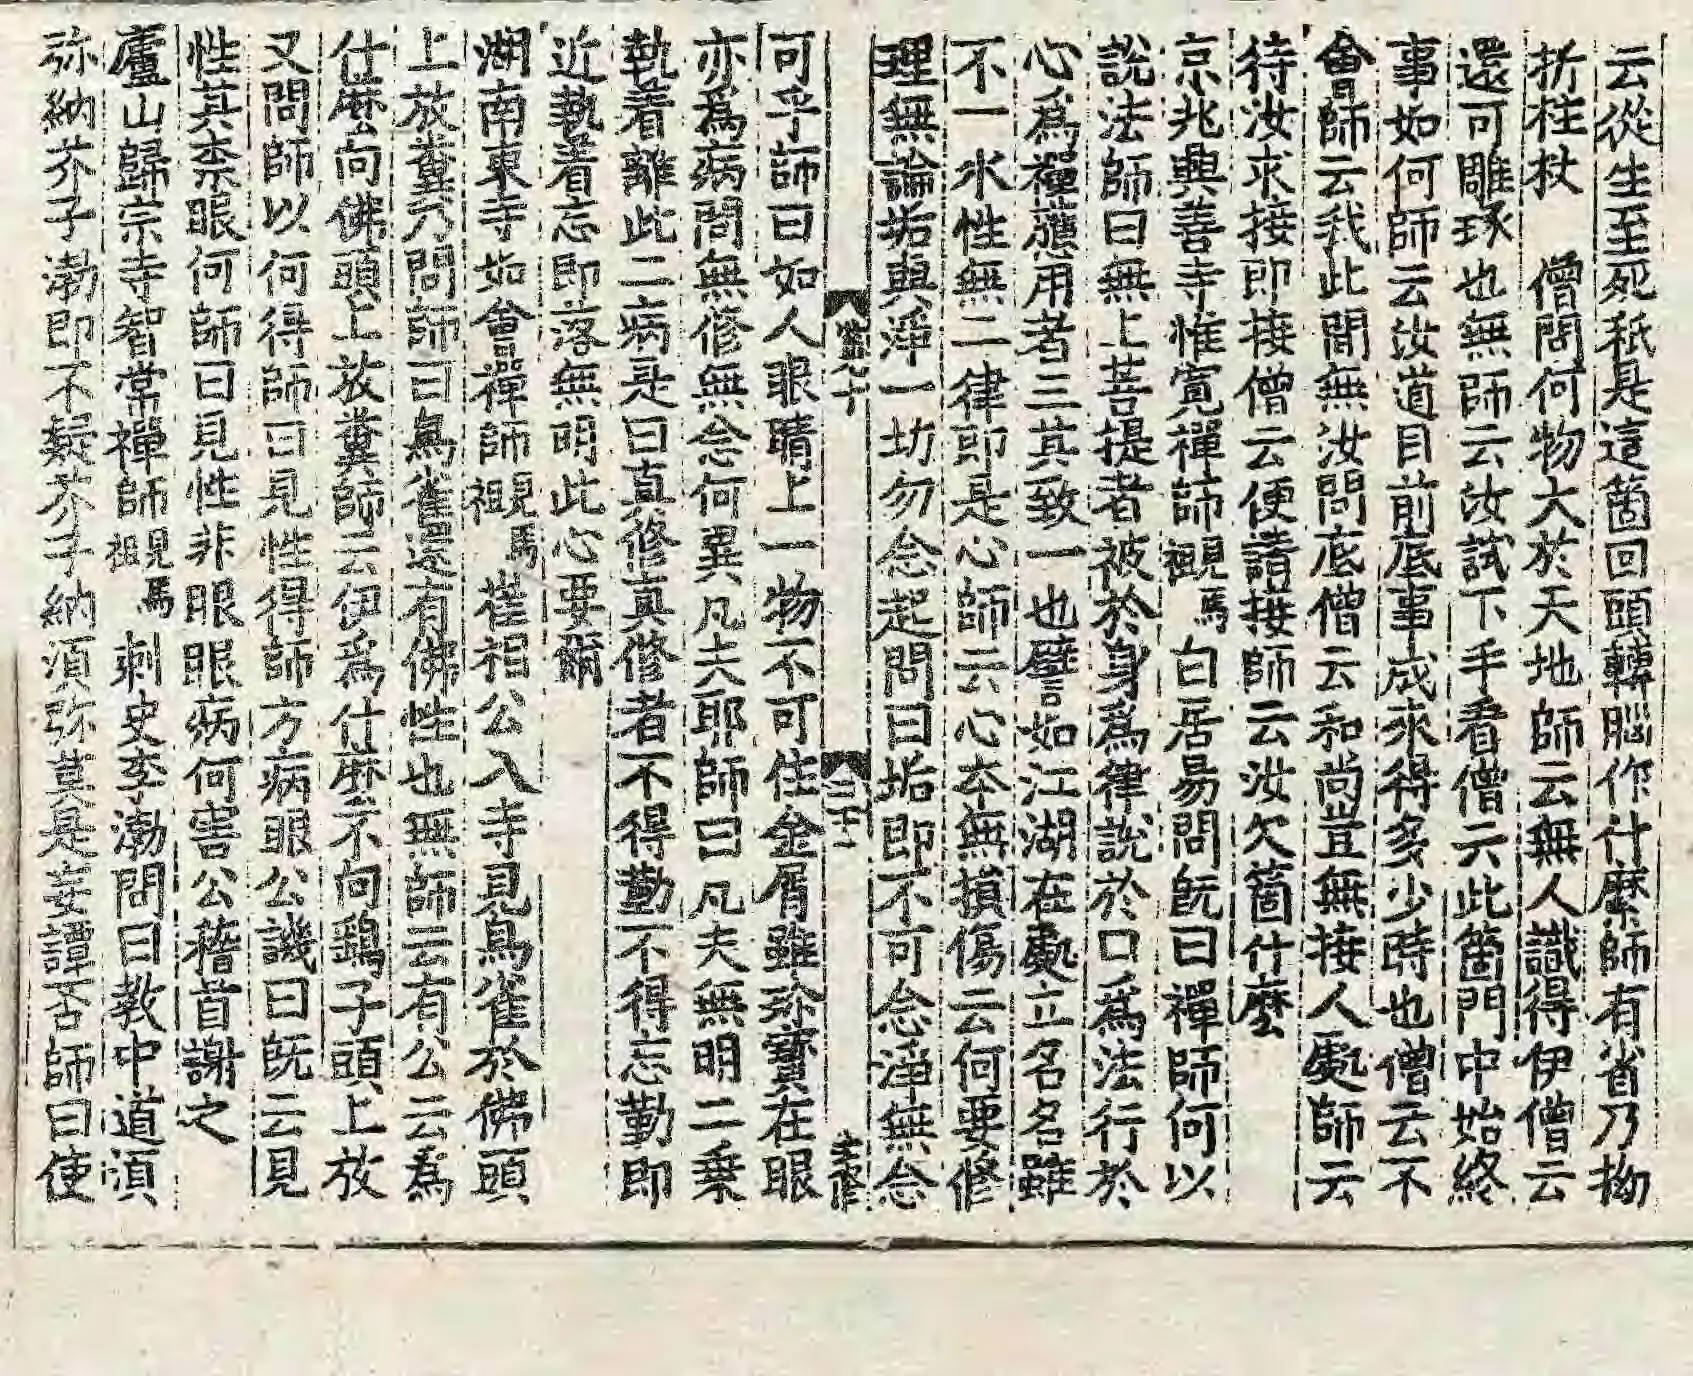 云從生至死秖是這箇回頭轉腦作什麽師有省乃拗
折柱杖　僧問何物大於天地師云無人識得伊僧云
還可雕琢也無師云汝試下手看僧云此箇門中始終
事如何師云汝道目前底事成來得多少時也僧云不
會師云我此間無汝問底僧云和尚豈無接人處師云
待汝求接即接僧云便請接師云汝欠箇什麽
京兆興善寺惟寬禪師嗣馬祖　白居易問旣曰禪師何以
說法師曰無上菩提者被於身爲律說於口爲法行於
心爲禪應用者三其致一也譬如江湖在處立名名雖
不一水性無二律即是心師云心本無損傷云何要修
理無論垢與淨一坊勿念起問曰垢即不可念淨無念
可乎師曰如人眼睛上一物不可住金屑雖珎寶在眼
亦爲病問無修無念何異凡夫耶師曰凡夫無明二乗
執着離此二病是曰真修真修者不得勤不得忘勤即
近執着忘即落無明此心要爾
湖南東寺如會禪師嗣馬祖　崔相公入寺見鳥雀於佛頭
上放糞乃問師曰鳥雀還有佛性也無師云有公云爲
什麽向佛頭上放糞師云伊爲什麽不向鷂子頭上放
又問師以何得師曰見性得師方病眼公譏曰旣云見
性其柰眼何師曰見性非眼眼病何害公稽首謝之
廬山歸宗寺智常禪師嗣馬祖　刺史李渤問曰敎中道湏
弥納芥子渤即不疑芥子納湏弥莫是妄譚否師曰使